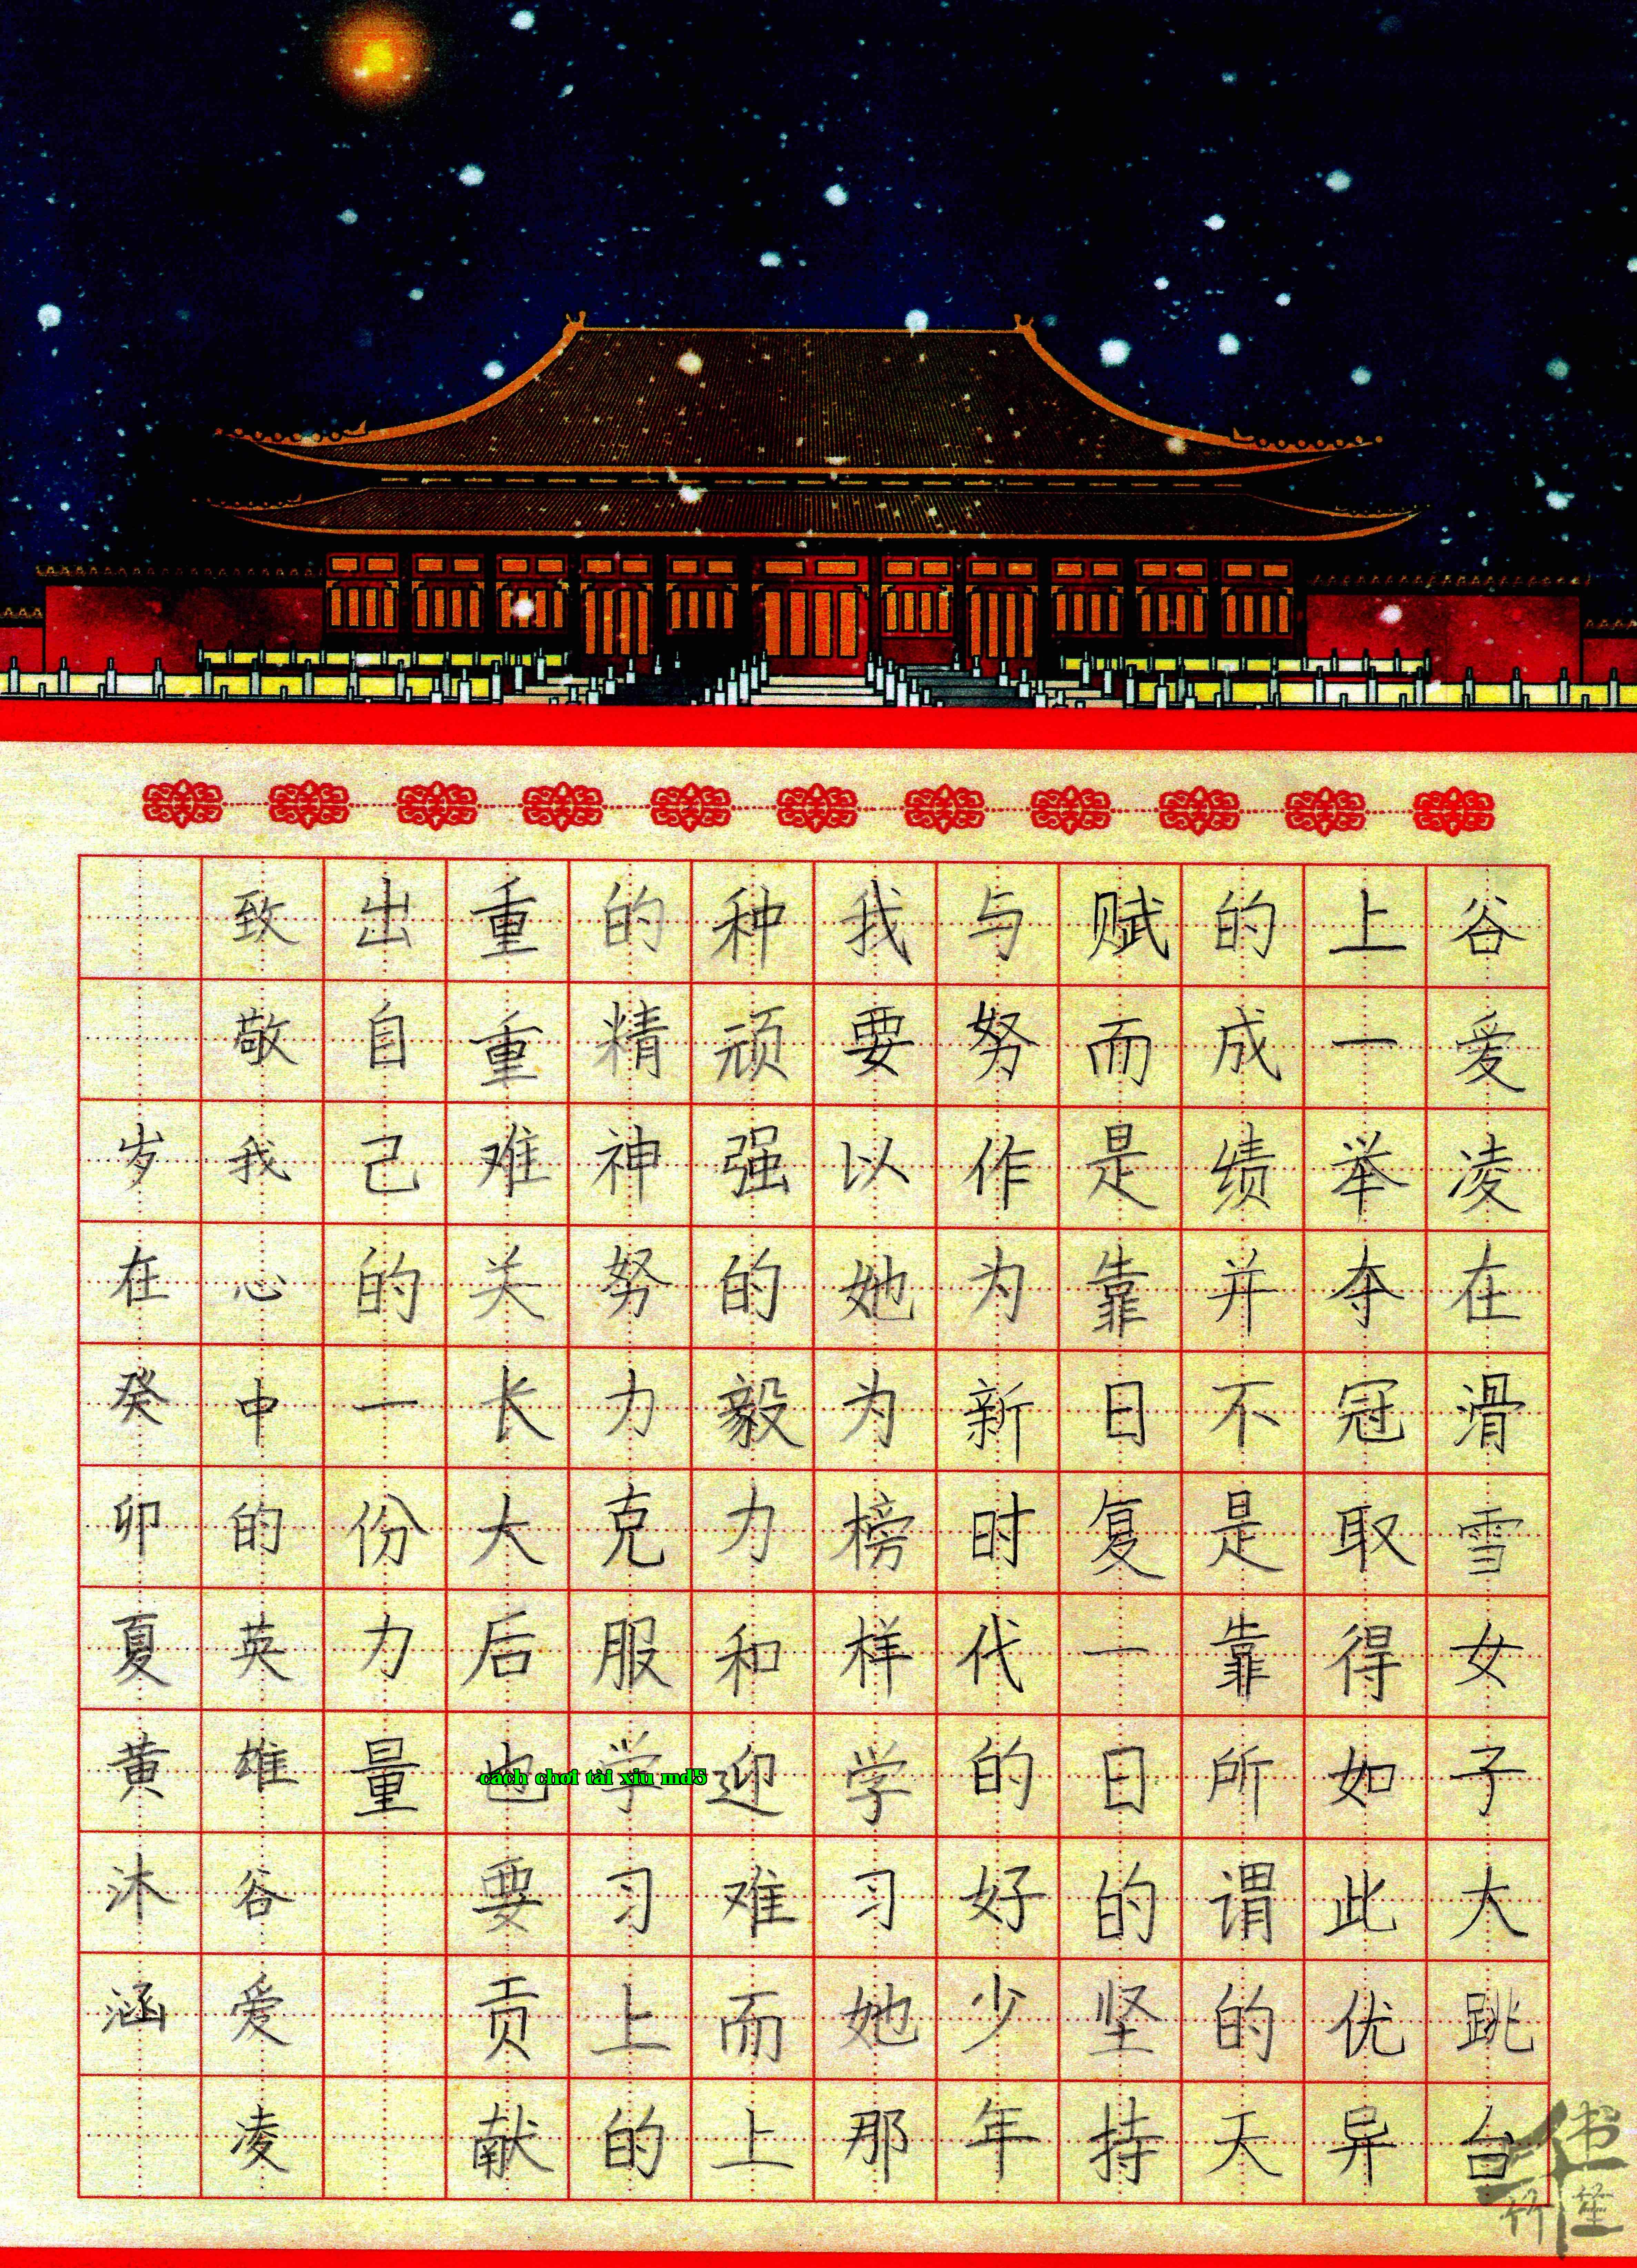 谷爱凌在滑雪女子大跳台
上一举夺冠取得如此优异
的成绩并不是靠所谓的天
赋而是靠日复一日的坚持
与努作为新时代的好少年
我要以她为榜样学习她那
种顽强的毅力和迎难而上
的精神努力克服学习上的
重重难关长大后也要贡献
出自己的一份力量
致敬我心中的英雄谷爱凌
岁在癸卯夏黄沐涵
cách chơi tài xỉu md5